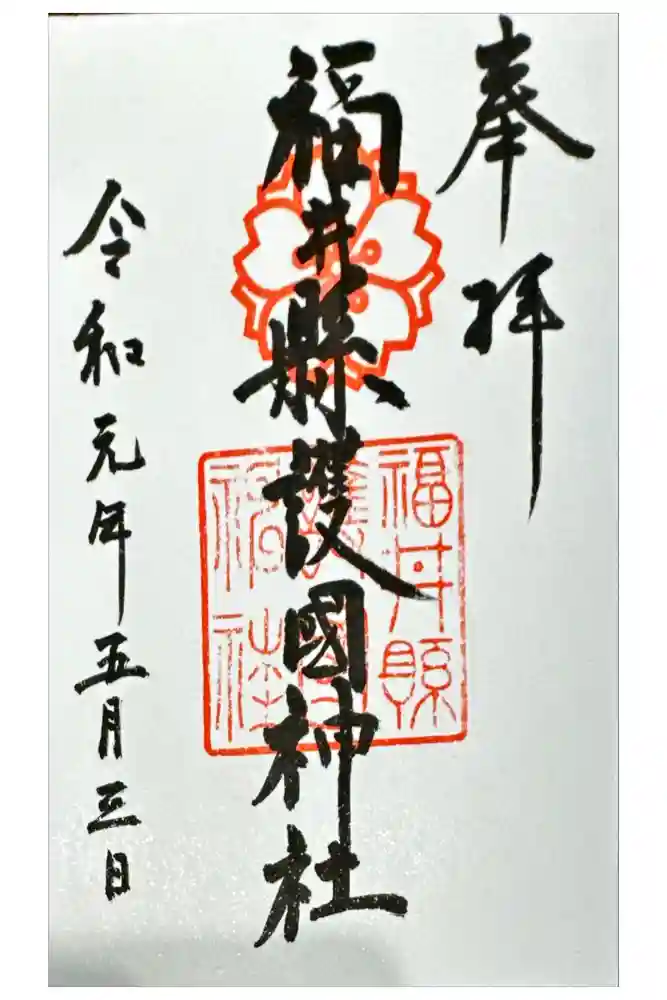 奉拝
福井縣護國神社
令和元年五月三日
福井縣
護國
神社